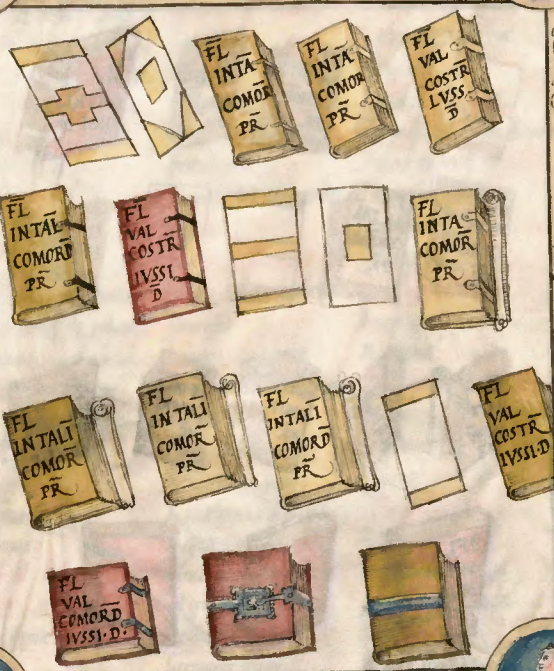 F̅L̅
INTA̅
COMOR
PR̅
F̅L̅
INTA̅
COMOR
PR̅
F̅L̅
VAL
COSTR̅
LVSS
D̅
F̅L̅
INTAL̅
COMORD̅
PR̅
F̅L̅
VAL
COSTR̅
IVSSI
D̅
F̅L̅
INTA̅
COMOR̅
PR̅
F̅L̅
INTALI̅
COMOR̅
PR̅
F̅L̅
INTALI̅
COMOR̅
PR̅
F̅L̅
INTALI̅
COMORD̅
PR̅
F̅L̅
VAL
COSTR̅
IVSSI·D
F̅L̅
VAL
COMORD̅
IVSSI·D·